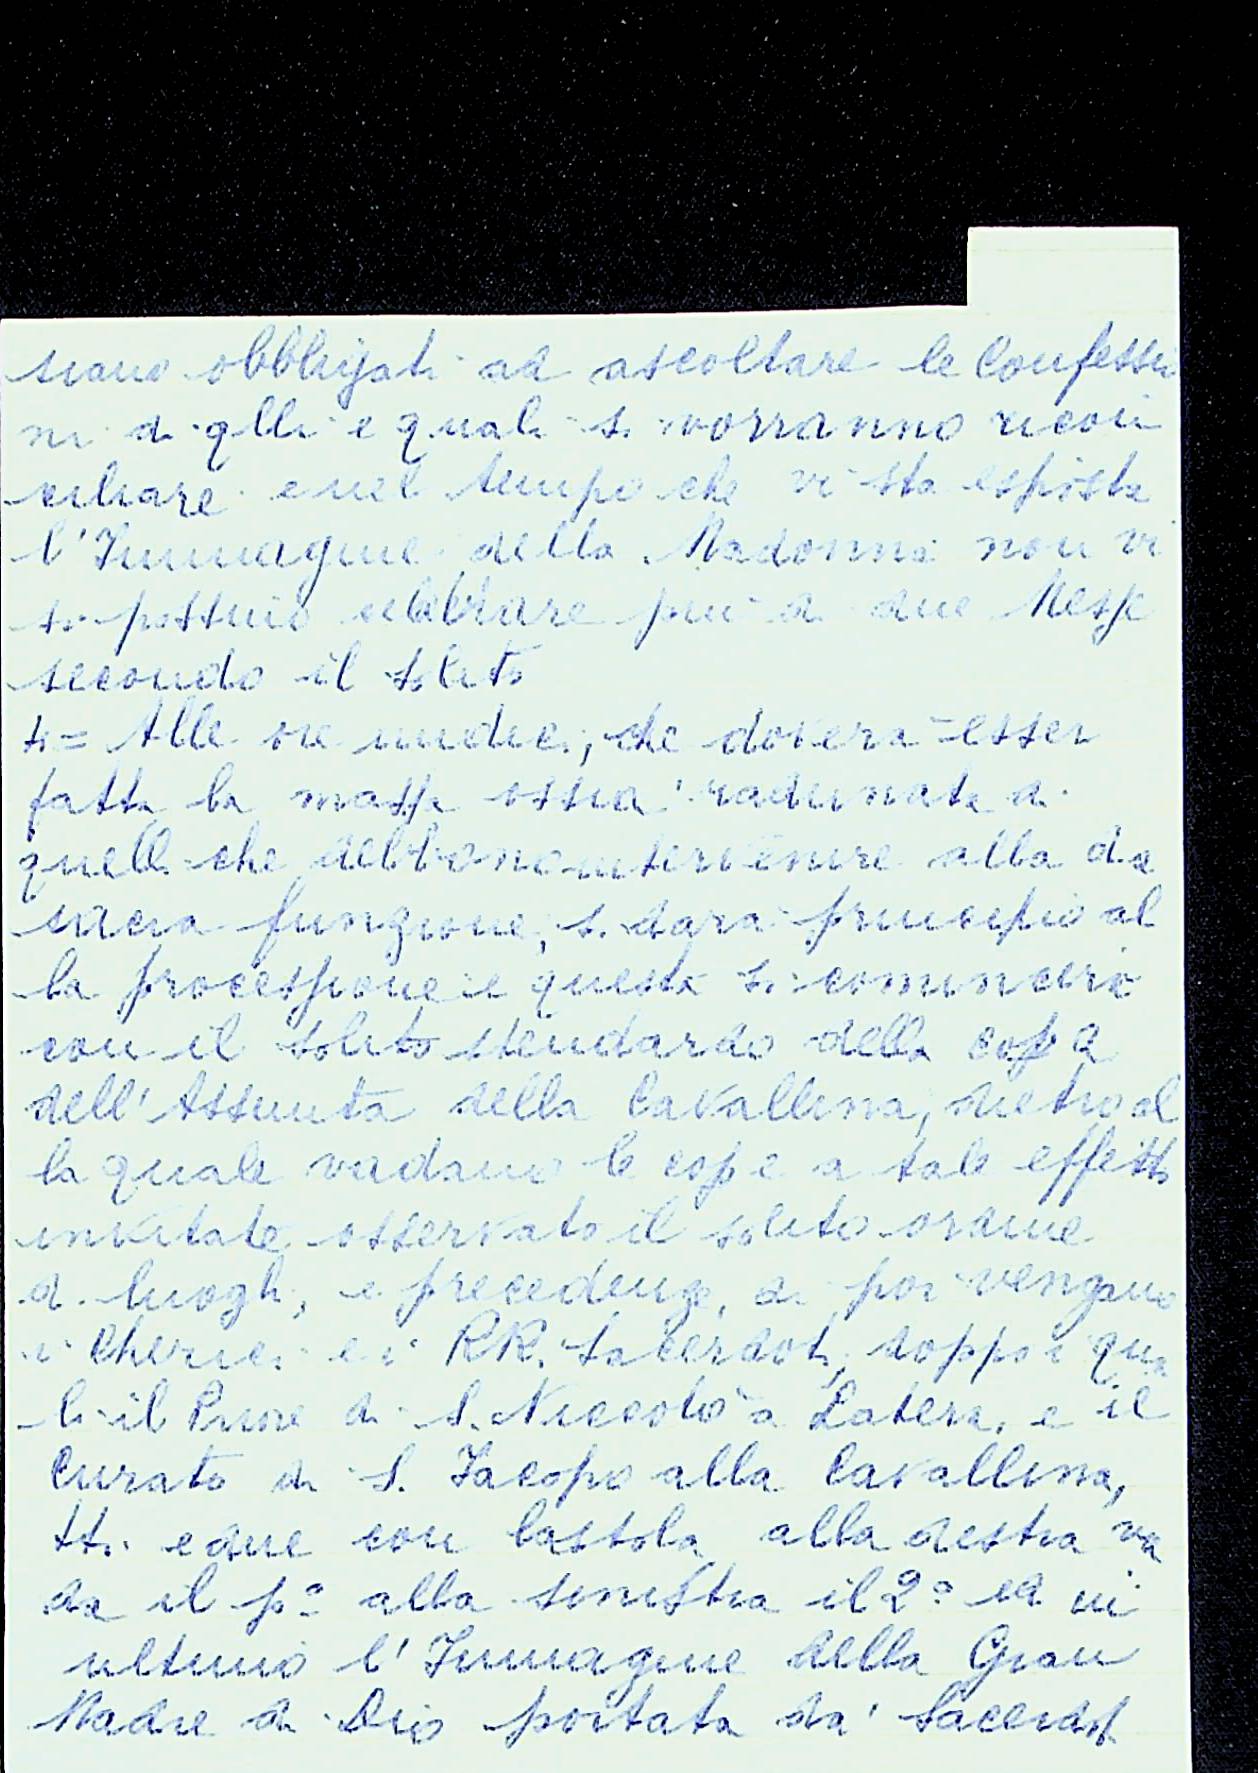 siano obbligati ad ascoltare le Confessio
ni di qlli e quali si vorranno ricon
ciliare e nel tempo che vi sta esposta
l'Immagine della Madonna non vi
si possino celebrare piu di due Messe
secondo il solito
4= Alle ore undici, che dovera esser
fatta la massa ossia radunata di
quelli che debbono intervenire alla di
sacra funzione, si dara principio al
la processione e questa si comincerà
con il solito stendardo della copa
dell'Assunta della Cavallina, dietro al
la quale vadano le cope a tale effetto
invitate osservato il solito ordine
di luoghi, e precedenze, di poi vengano
i Cherici e i RR. Sacerdoti, doppo i qua
li il Priore di S. Niccolò a Latera, e il
Curato di S. Iacopo alla Cavallina,
tti e due con la stola alla destra va
da il p.º alla sinistra il 2º ed in
ultimo l'Immagine della Gran
Madre di Dio portata da' Sacerdot